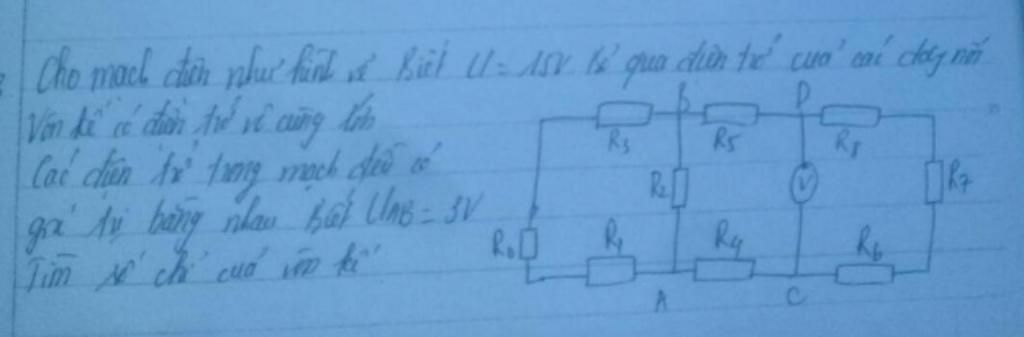 Cho mạch điện như hình vẽ Biết U = 15V bỏ qua điện trở của các dây nối
Vôn kế có điện trở vô cùng lớn
Các điện trở trong mạch đều có
giá trị bằng nhau Biết UAB = 3V
Tìm số chỉ của vôn kế
B D
R3 R5 R8
R2 V R7
R0 R1 R4 R6
A C